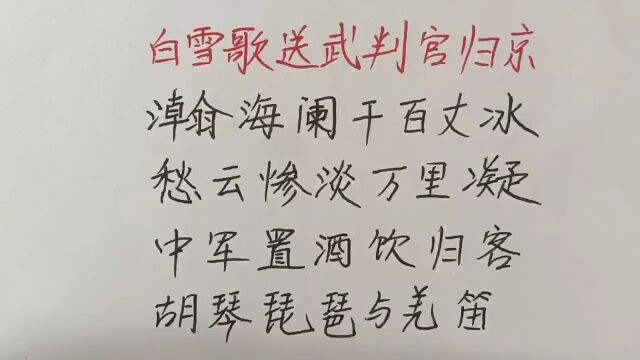 白雪歌送武判官归京
瀚海阑干百丈冰
愁云惨淡万里凝
中军置酒饮归客
胡琴琵琶与羌笛